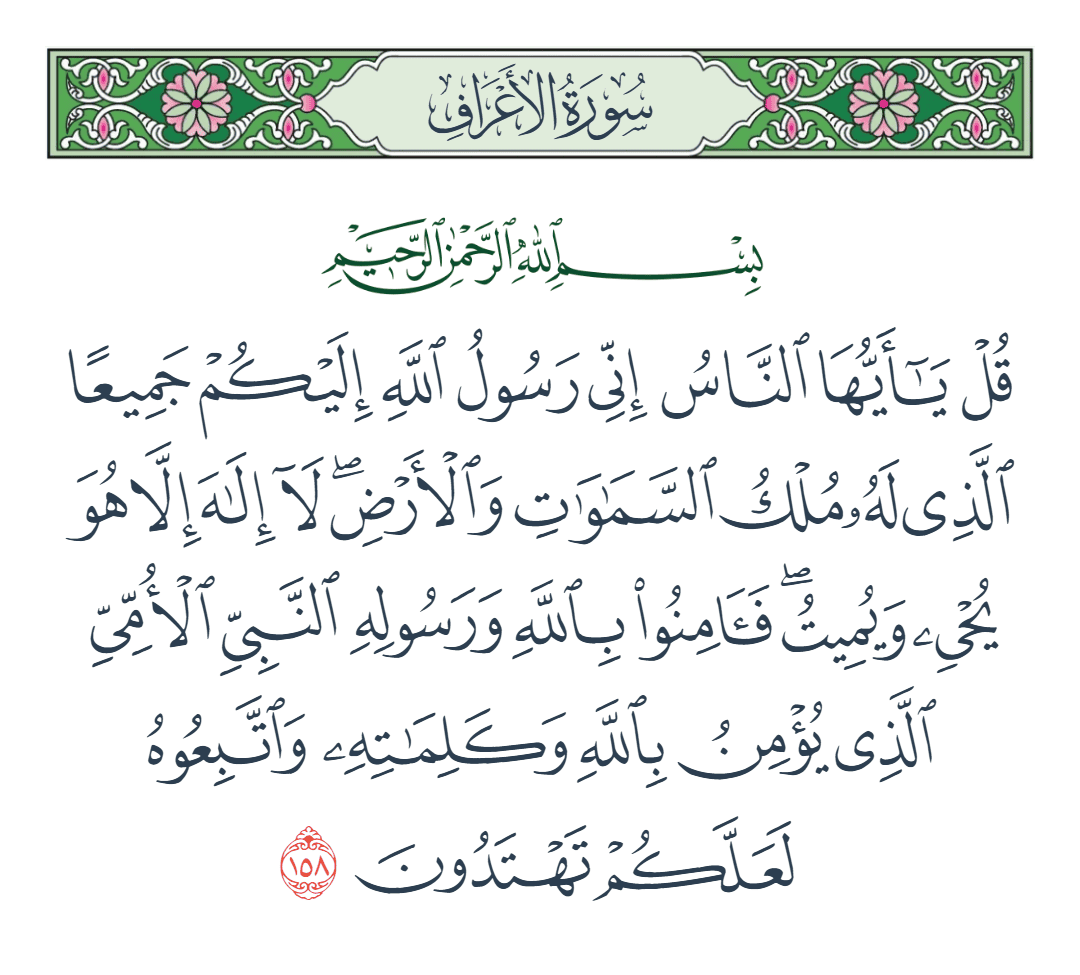 سُورَةُ الأَعْرَافِ
بِسْمِ ٱللَّهِ ٱلرَّحْمَٰنِ ٱلرَّحِيمِ
قُلْ يَٰٓأَيُّهَا ٱلنَّاسُ إِنِّى رَسُولُ ٱللَّهِ إِلَيْكُمْ جَمِيعًا
ٱلَّذِى لَهُۥ مُلْكُ ٱلسَّمَٰوَٰتِ وَٱلْأَرْضِ ۖ لَآ إِلَٰهَ إِلَّا هُوَ
يُحْىِۦ وَيُمِيتُ ۖ فَـَٔامِنُوا۟ بِٱللَّهِ وَرَسُولِهِ ٱلنَّبِىِّ ٱلْأُمِّىِّ
ٱلَّذِى يُؤْمِنُ بِٱللَّهِ وَكَلِمَٰتِهِۦ وَٱتَّبِعُوهُ
لَعَلَّكُمْ تَهْتَدُونَ ١٥٨